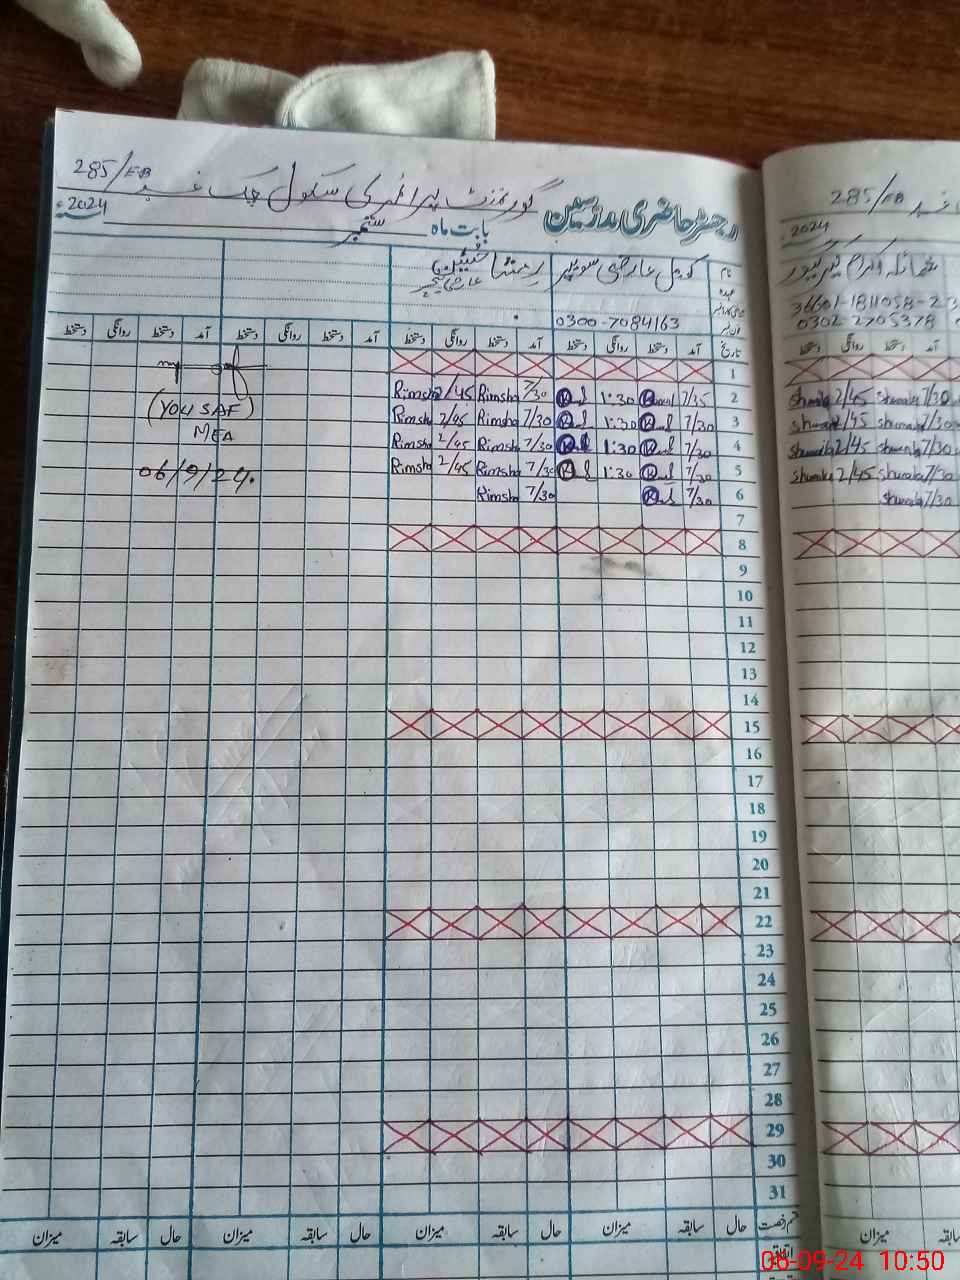 گورنمنٹ پرائمری سکول چک نمبر 285/EB
رجسٹر حاضری مدرسین
بابت ماہ ستمبر 2024ء
نام
کومل عارضی سویپر
رمشا
عہدہ
0300-7084163
تاریخ آمد دستخط روانگی دستخط آمد دستخط روانگی دستخط آمد دستخط روانگی دستخط آمد دستخط روانگی دستخط
1
2 7/35 1:30 7/30 Rimsha 2/45 Rimsha
3 7/30 1:30 7/30 Rimsha 2/45 Rimsha
4 7/30 1:30 7/30 Rimsha 2/45 Rimsha
5 7/30 1:30 7/30 Rimsha 2/45 Rimsha
6 7/30 7/30 Rimsha
7
8
9
10
11
12
13
14
15
16
17
18
19
20
21
22
23
24
25
26
27
28
29
30
31
(YOUSAF)
MEA
06/9/24.
حال سابقہ میزان حال سابقہ میزان حال سابقہ میزان حال سابقہ میزان
285/EB
2024ء
0302-2705378
دستخط روانگی دستخط آمد
7/30 2/45
7/30 2/45
7/30 2/45
7/30 2/45
7/30
میزان
06-09-24 10:50